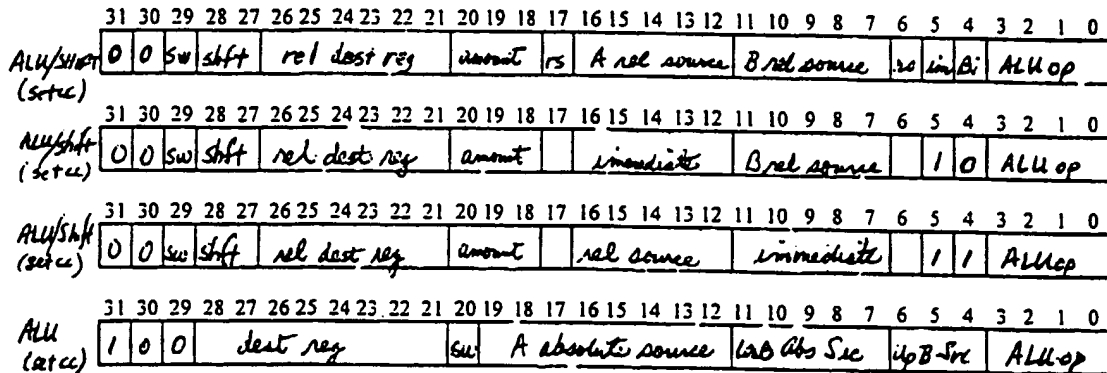 31 30 29 28 27 26 25 24 23 22 21 20 19 18 17 16 15 14 13 12 11 10 9 8 7 6 5 4 3 2 1 0
ALU/Shift 0 0 sw shft rel dest reg amount rs A rel source B rel source rs im Bi ALU op
(setcc)
31 30 29 28 27 26 25 24 23 22 21 20 19 18 17 16 15 14 13 12 11 10 9 8 7 6 5 4 3 2 1 0
ALU/shft 0 0 sw shft rel dest reg amount immediate B rel source 1 0 ALU op
(setcc)
31 30 29 28 27 26 25 24 23 22 21 20 19 18 17 16 15 14 13 12 11 10 9 8 7 6 5 4 3 2 1 0
ALU/Shft 0 0 sw shft rel dest reg amount rel source immediate 1 1 ALU op
(setcc)
31 30 29 28 27 26 25 24 23 22 21 20 19 18 17 16 15 14 13 12 11 10 9 8 7 6 5 4 3 2 1 0
ALU 1 0 0 dest reg sw A absolute source B Abs Src B Src ALU op
(setcc)